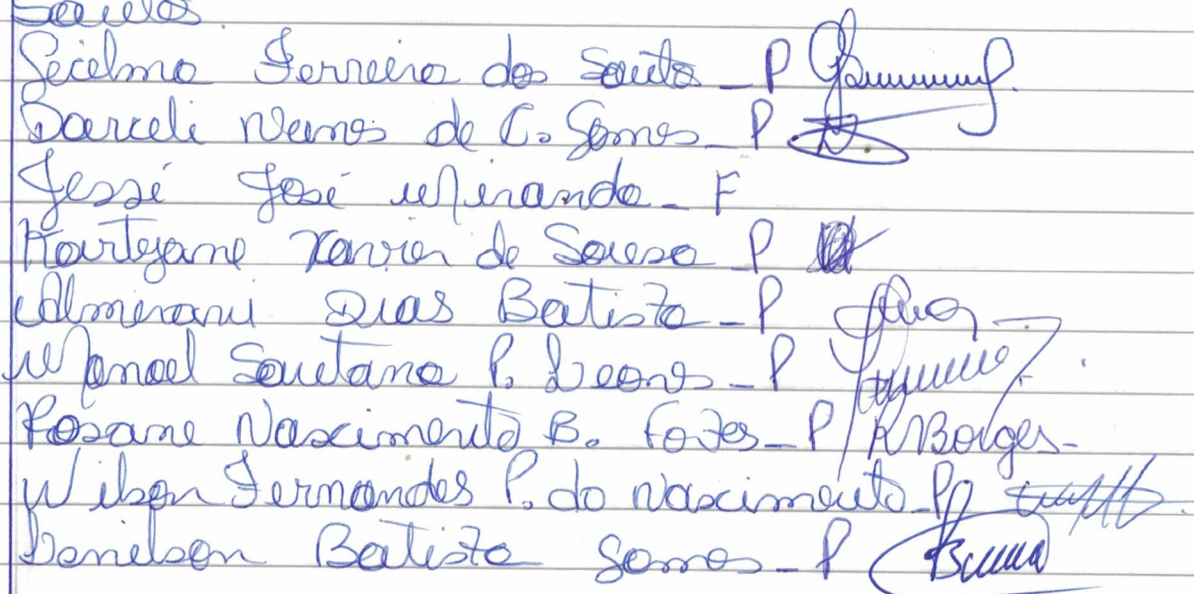 Santos
Gecelma Ferreira dos Santos - P
Darceli Nunes de C. Gomes - P
Jessé José Miranda - F
Kartejane Xavier de Sousa - P
Almerani Dias Batista - P
Manoel Santana P. Leones - P
Rosane Nascimento B. Fortes - P RNBorges
Wilson Fernandes P. do Nascimento - P
Denilson Batista Gomes - P